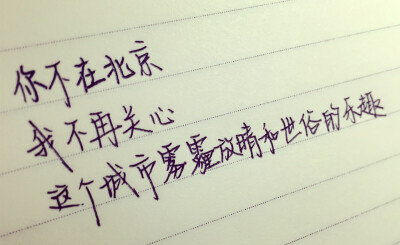 你不在北京
我不再关心
这个城市雾霾放晴和世俗的乐趣